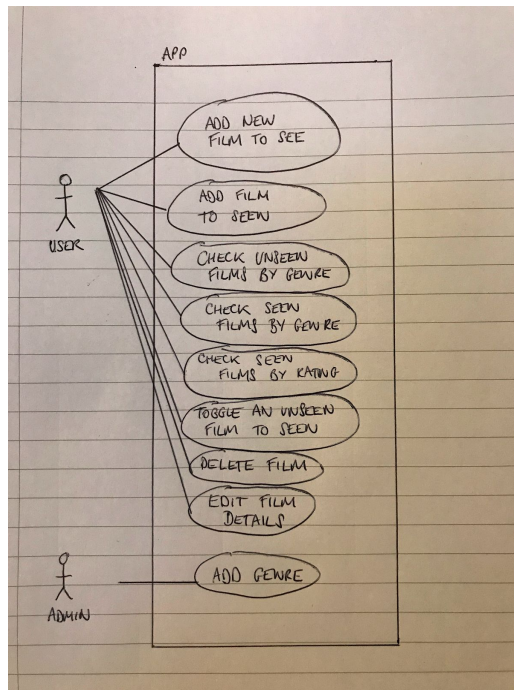 APP
ADD NEW
FILM TO SEE
ADD FILM
TO SEEN
USER
CHECK UNSEEN
FILMS BY GENRE
CHECK SEEN
FILMS BY GENRE
CHECK SEEN
FILMS BY RATING
TOGGLE AN UNSEEN
FILM TO SEEN
DELETE FILM
EDIT FILM
DETAILS
ADD GENRE
ADMIN